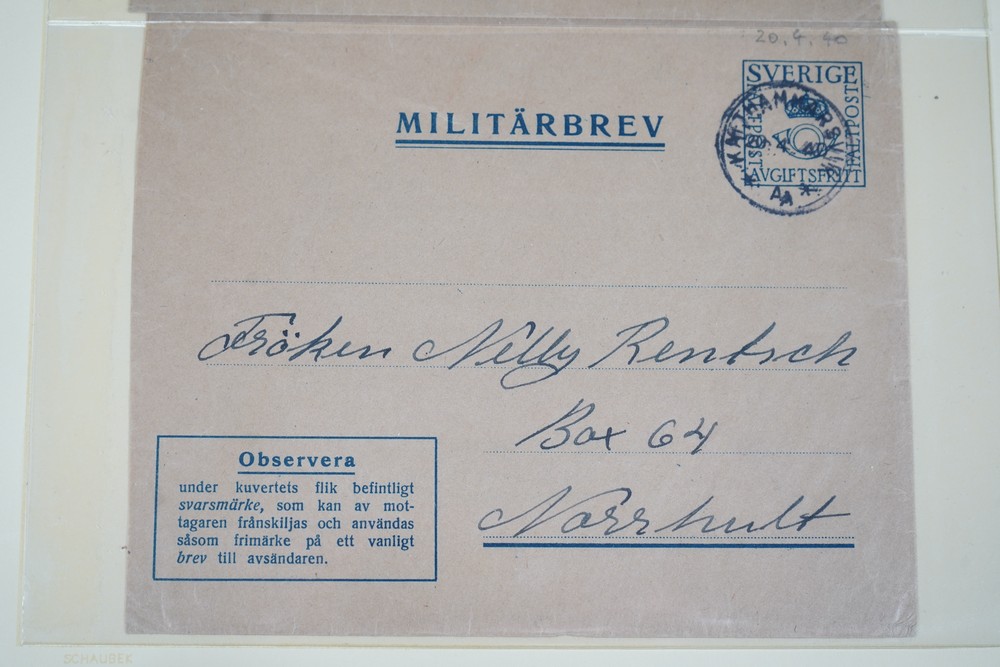 20.4.40
SVERIGE
FÄLTPOST
AVGIFTSFRITT
KATTHAMMARSVIK
20 4 40
MILITÄRBREV
Fröken Nelly Rentsch
Box 64
Norrhult
Observera
under kuvertets flik befintligt
svarsmärke, som kan av mot-
tagaren frånskiljas och användas
såsom frimärke på ett vanligt
brev till avsändaren.
SCHAUBEK